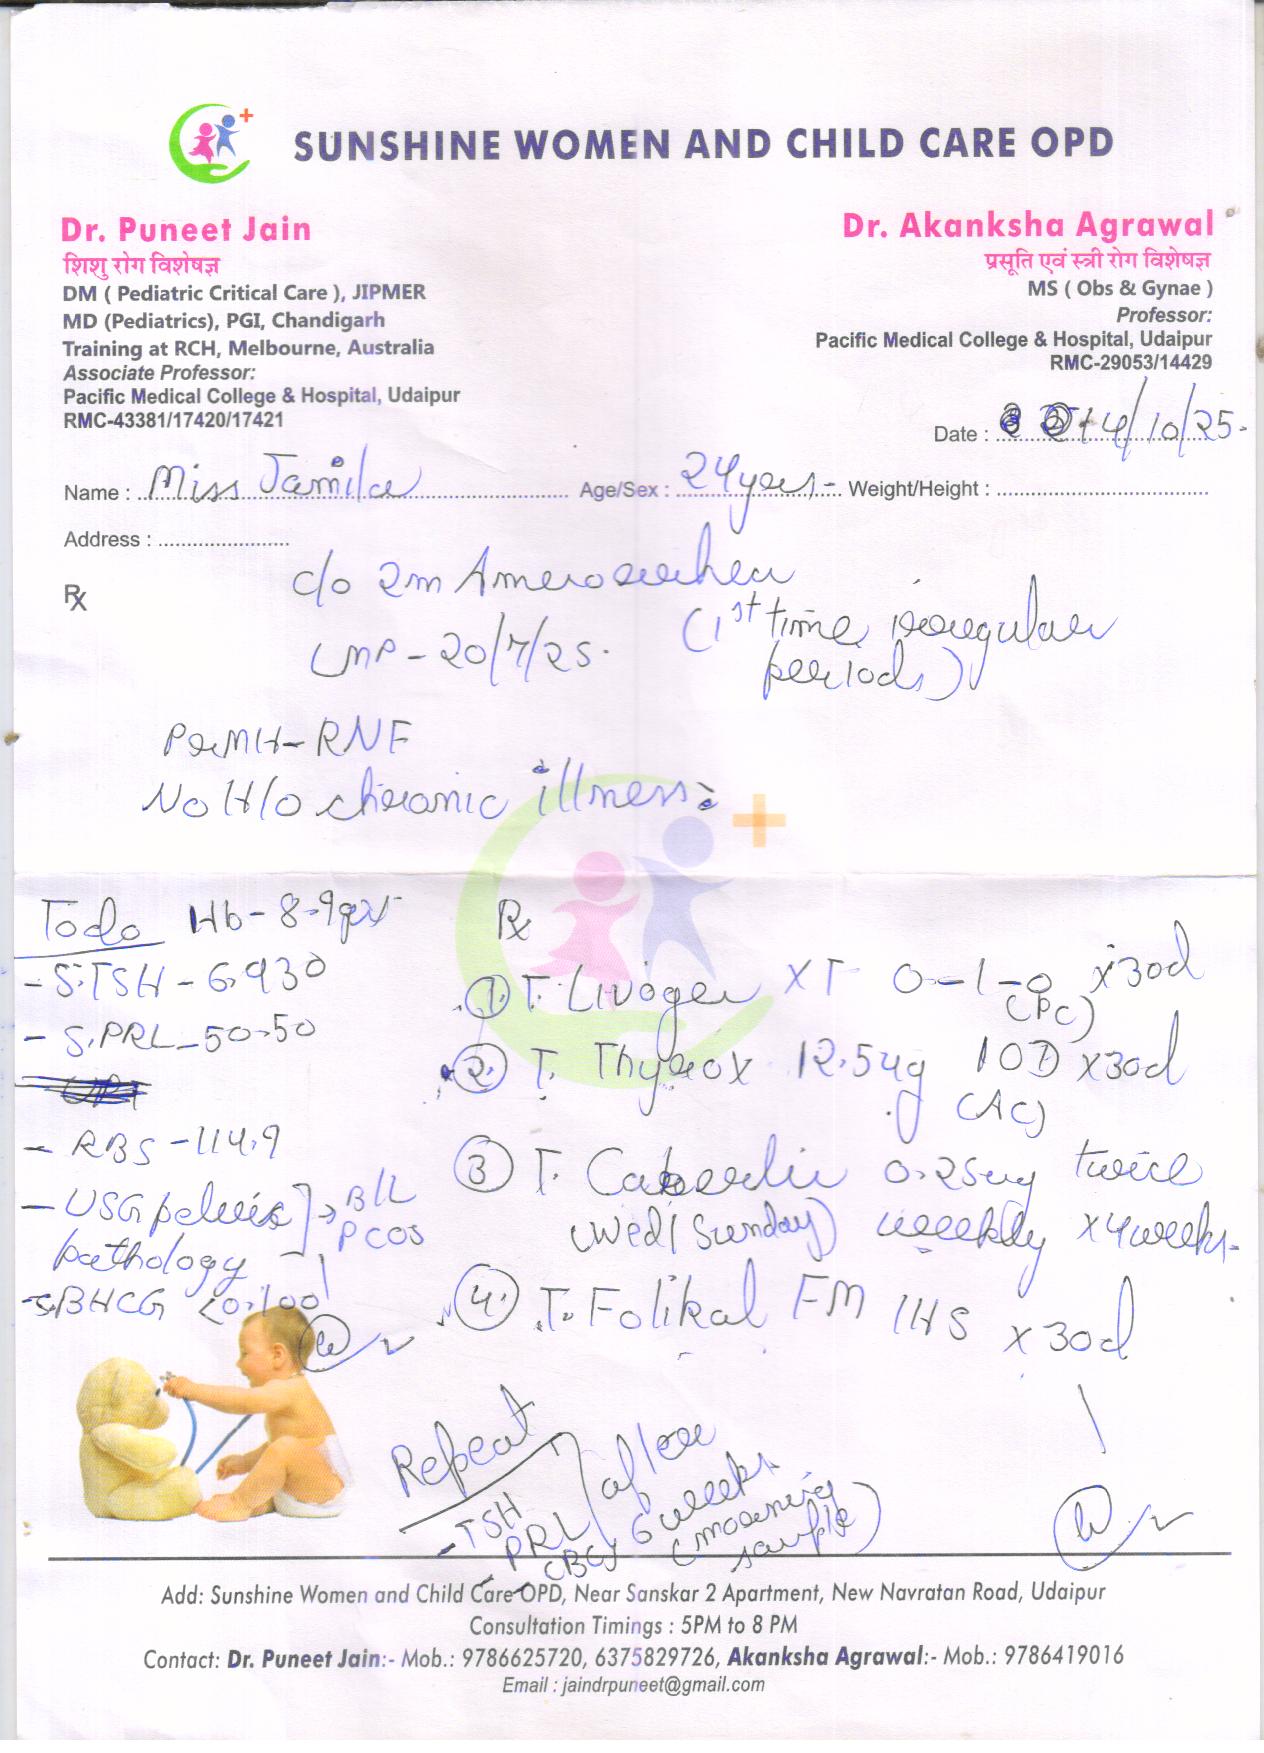 SUNSHINE WOMEN AND CHILD CARE OPD
Dr. Puneet Jain
शिशु रोग विशेषज्ञ
DM ( Pediatric Critical Care ), JIPMER
MD (Pediatrics), PGI, Chandigarh
Training at RCH, Melbourne, Australia
Associate Professor:
Pacific Medical College & Hospital, Udaipur
RMC-43381/17420/17421
Dr. Akanksha Agrawal
प्रसूति एवं स्त्री रोग विशेषज्ञ
MS ( Obs & Gynae )
Professor:
Pacific Medical College & Hospital, Udaipur
RMC-29053/14429
Date : 14/10/25.
Name : Miss Jamila Age/Sex : 24 years Weight/Height :
Address :
Rx
c/o 2m Amenorrhea
(1st time irregular
periods)
LMP - 20/7/25.
RNF
No H/o chronic illness.
Todo Hb - 8.9
- S.TSH - 6.930
- S.PRL - 50.50
- RBS - 114.9
- USG pelvic → B/L
pathology PCOS
- S.BHCG <0.100
Rx
1. T. Livogen XT 0-1-0 x30d
(PC)
2. T. Thyrox 12.5ug 1OD x30d
(AC)
3 T. Caberlin 0.25 twice
(Wed/Sunday) weekly x4weeks.
4. T. Folikal FM 1HS x30d
Repeat
- TSH
- PRL
- CBC
after
6 weeks
(morning
sample)
Add: Sunshine Women and Child Care OPD, Near Sanskar 2 Apartment, New Navratan Road, Udaipur
Consultation Timings : 5PM to 8 PM
Contact: Dr. Puneet Jain:- Mob.: 9786625720, 6375829726, Akanksha Agrawal:- Mob.: 9786419016
Email : jaindrpuneet@gmail.com